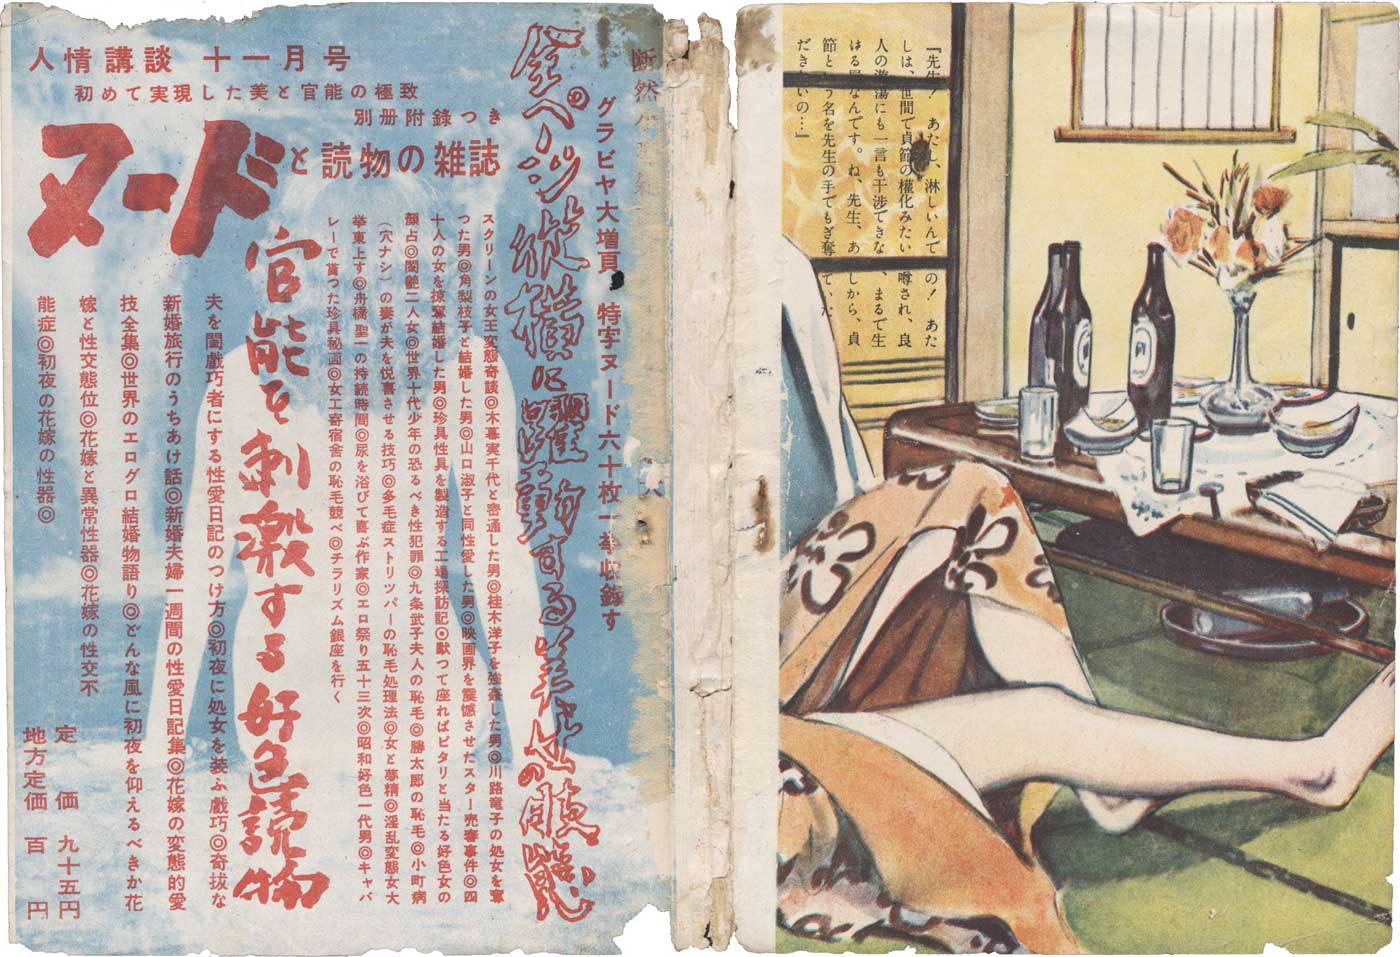 人情講談 十一月号
初めて実現した美と官能の極致
別册附錄つき
ヌードと読物の雑誌
断然
グラビヤ大増頁、特字ヌード六十枚一挙収録す
全ページに縦横に躍動する美女の臃態
スクリーンの女王変態奇談◎木暮実千代と密通した男◎桂木洋子を強姦した男◎川路竜子の処女を奪
つた男◎角梨枝子と結婚した男◎山口淑子と同性愛した男◎映画界を震憾させたスター売春事件◎四
十人の女を掠奪結婚した男◎珍具性具を製造する工場探訪記◎默つて座ればピタリと当たる好色女の
顔占◎閨艶二人女◎世界十代少年の恐るべき性犯罪◎九条武子夫人の恥毛◎勝太郎の恥毛◎小町病
（穴ナシ）の妻が夫を悦喜させる技巧◎多毛症ストリツパーの恥毛処理法◎女と夢精◎淫乱変態女大
挙東上す◎舟橋聖一の持続時間◎尿を浴びて喜ぶ作家◎エロ祭り五十三次◎昭和好色一代男◎キャバ
レーで貰つた珍具秘画◎女工寄宿舎の恥毛競べ◎チラリズム銀座を行く
官能を刺激する好色読物
夫を閨戯巧者にする性愛日記のつけ方◎初夜に処女を装ふ戯巧◎奇抜な
新婚旅行のうちあけ話◎新婚夫婦一週間の性愛日記集◎花嫁の変態的愛
技全集◎世界のエログロ結婚物語り◎どんな風に初夜を仰えるべきか花
嫁と性交態位◎花嫁と異常性器◎花嫁の性交不
能症◎初夜の花嫁の性器◎
定価 九十五円
地方定価 百円
『先生！ あたし、淋しいんての！ あた
しは、世間で貞節の権化みたい噂され、良
人の遊蕩にも一言も干渉できな、まるで生
ける屍なんです。ね、先生、あしから、貞
節とう名を先生の手でもぎ奪ていた
だきいの…』